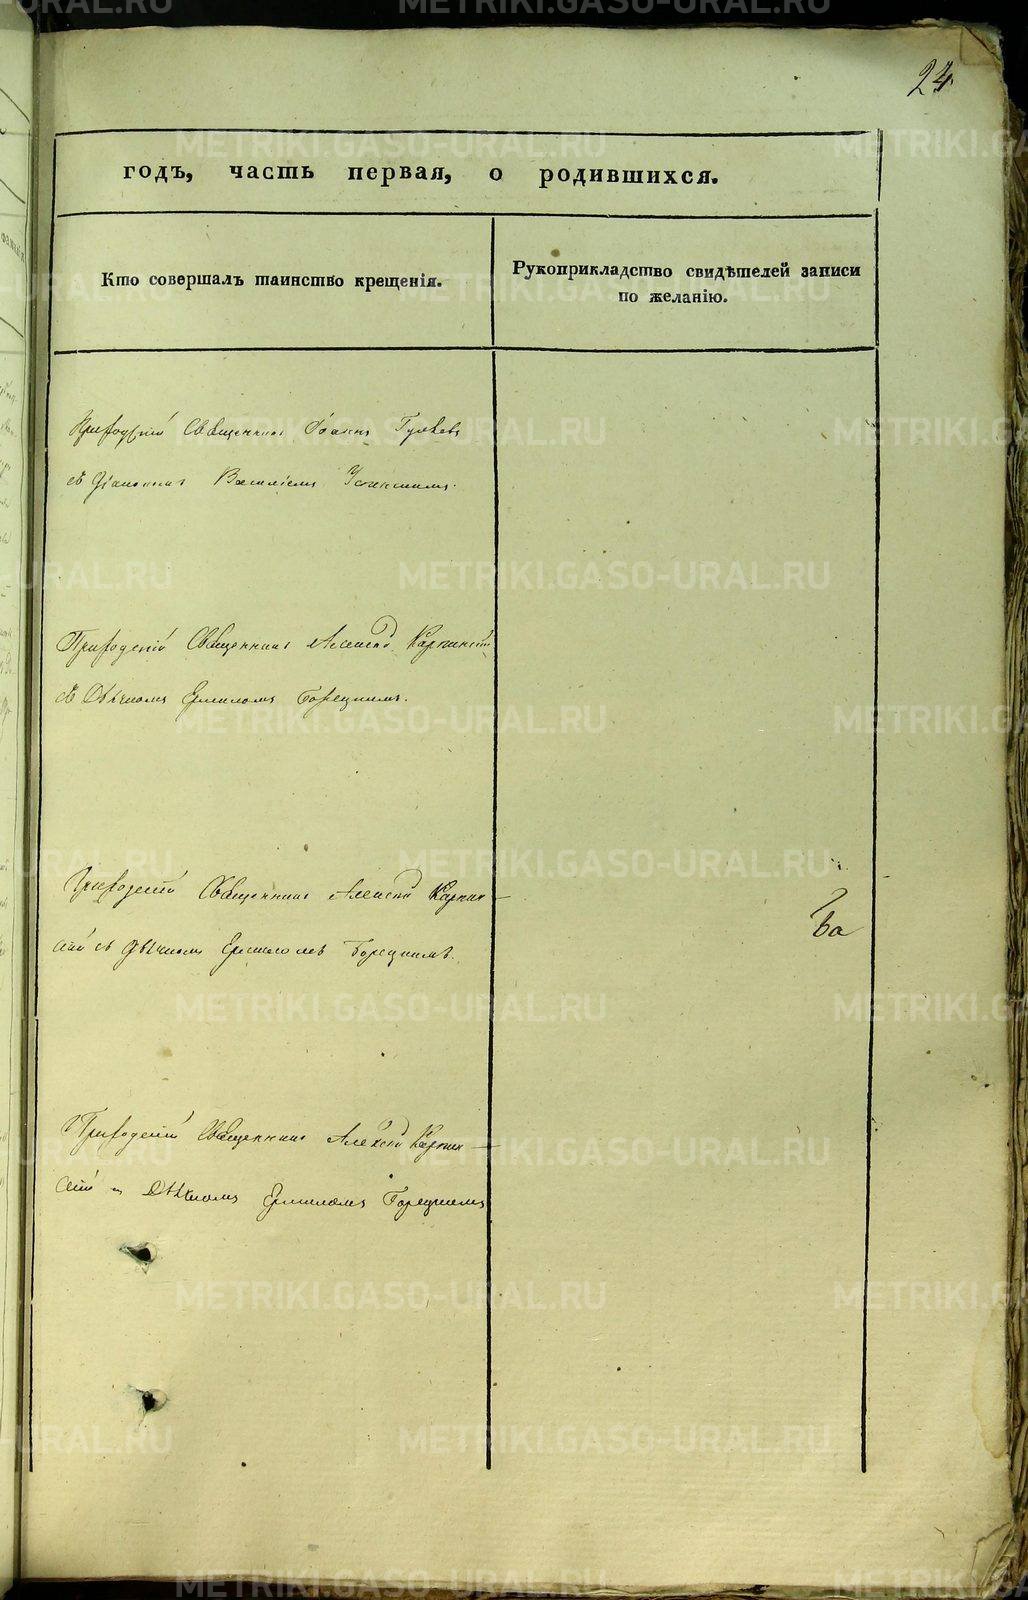 24
годъ, часть первая, о родившихся.
Кто совершалъ таинство крещенія.
Рукоприкладство свидѣтелей записи
по желанію.
Приходскій Священникъ Іоаннъ
съ Діакономъ Василіемъ
Приходскій Священникъ Алексій Карпинскій
съ Дьячкомъ Ермиломъ Борецкимъ.
Приходскій Священникъ Алексій Карпин-
скій съ Дьячкомъ Ермиломъ Борецкимъ.
Приходскій Священникъ Алексій Карпин-
скій съ Дьячкомъ Ермиломъ Борецкимъ
METRIKI.GASO-URAL.RU